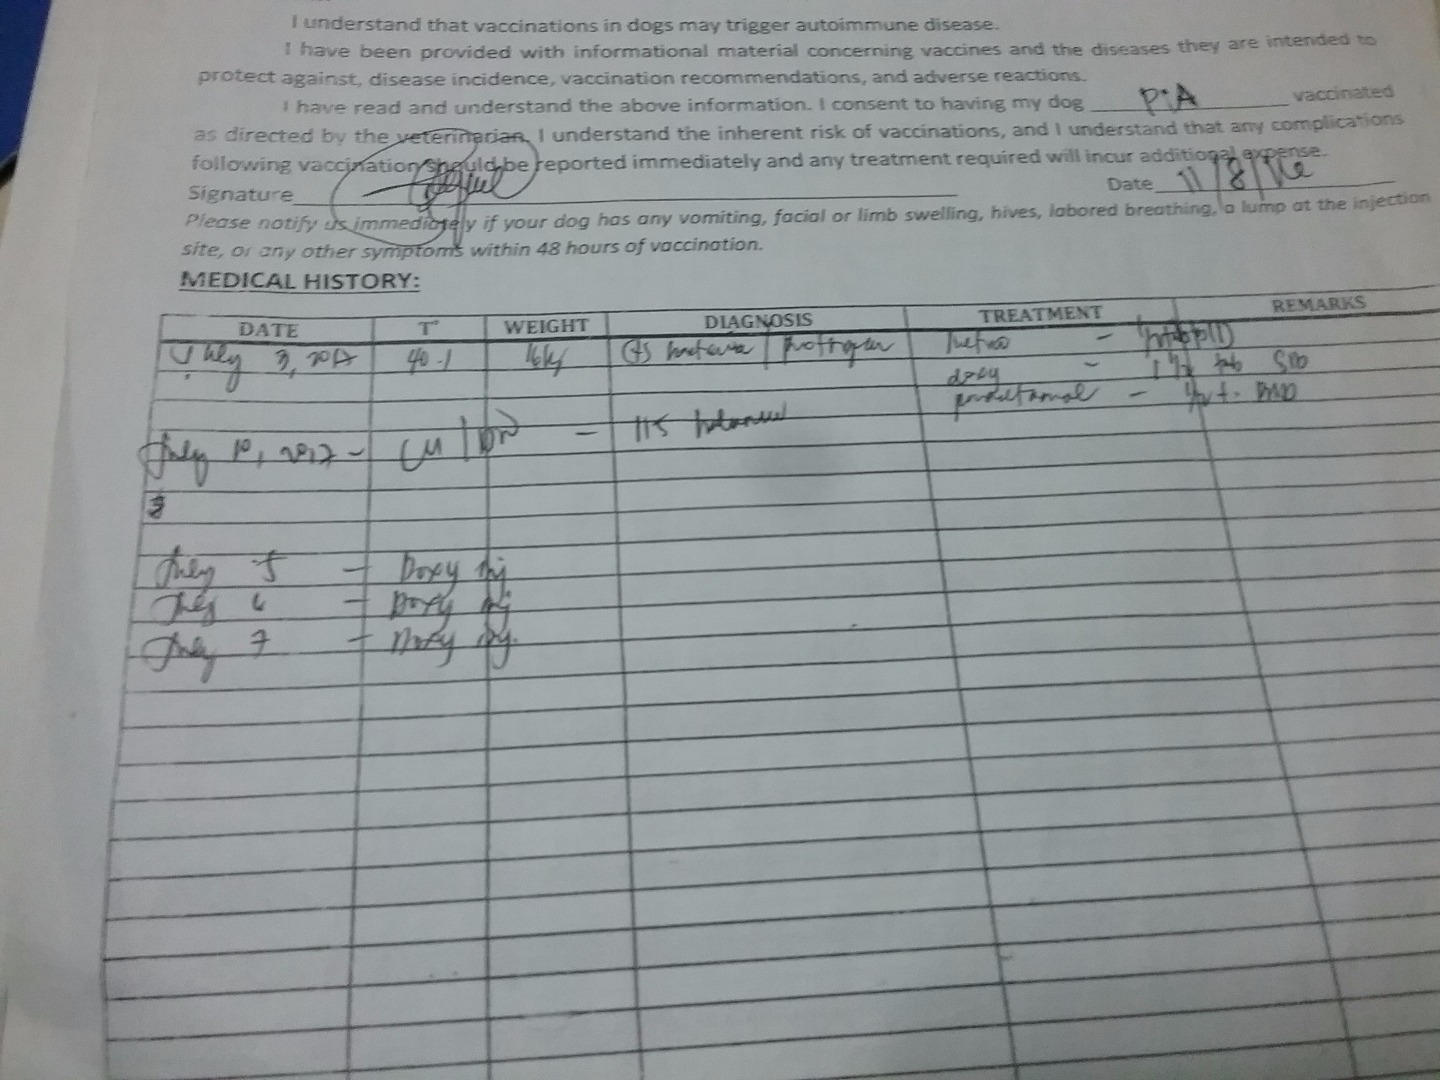 I understand that vaccinations in dogs may trigger autoimmune disease.
I have been provided with informational material concerning vaccines and the diseases they are intended to
protect against, disease incidence, vaccination recommendations, and adverse reactions.
I have read and understand the above information. I consent to having my dog PIA vaccinated
as directed by the veterinarian. I understand the inherent risk of vaccinations, and I understand that any complications
following vaccination should be reported immediately and any treatment required will incur additional expense.
Signature Date 11/8/16
Please notify us immediately if your dog has any vomiting, facial or limb swelling, hives, labored breathing, a lump at the injection
site, or any other symptoms within 48 hours of vaccination.
MEDICAL HISTORY:
DATE T° WEIGHT DIAGNOSIS TREATMENT REMARKS
July 3, 2017 40.1 16kg
doxy - SID
- BID
July 10, 2017 -
July 5 - Doxy inj
July 6 - Doxy inj
July 7 - Doxy inj.